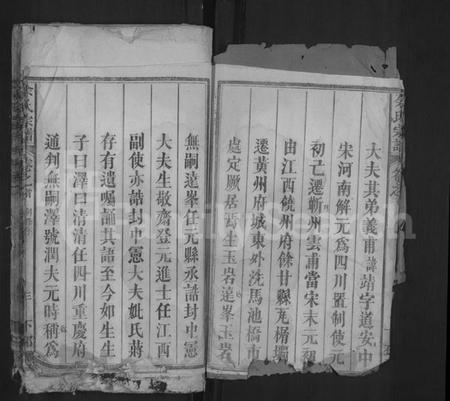 大夫其弟義甫諱靖字道安中
宋河南解元爲四川置制使元
初己遷蘄州雲甫當宋末元初
由江西饒州府餘甘縣瓦楫壩
遷黃州府城東外洗馬池橋市
處定厥居焉生玉岩達峯玉岩
無嗣達峯任元縣丞誥封中憲
大夫生敬齋登元進士任江西
副使亦誥封中憲大夫妣氏蔣
存有遺囑誦其語至今如生生
子曰澤曰清清任四川重慶府
通判無嗣澤號潤夫元時稱爲
FamilySearch